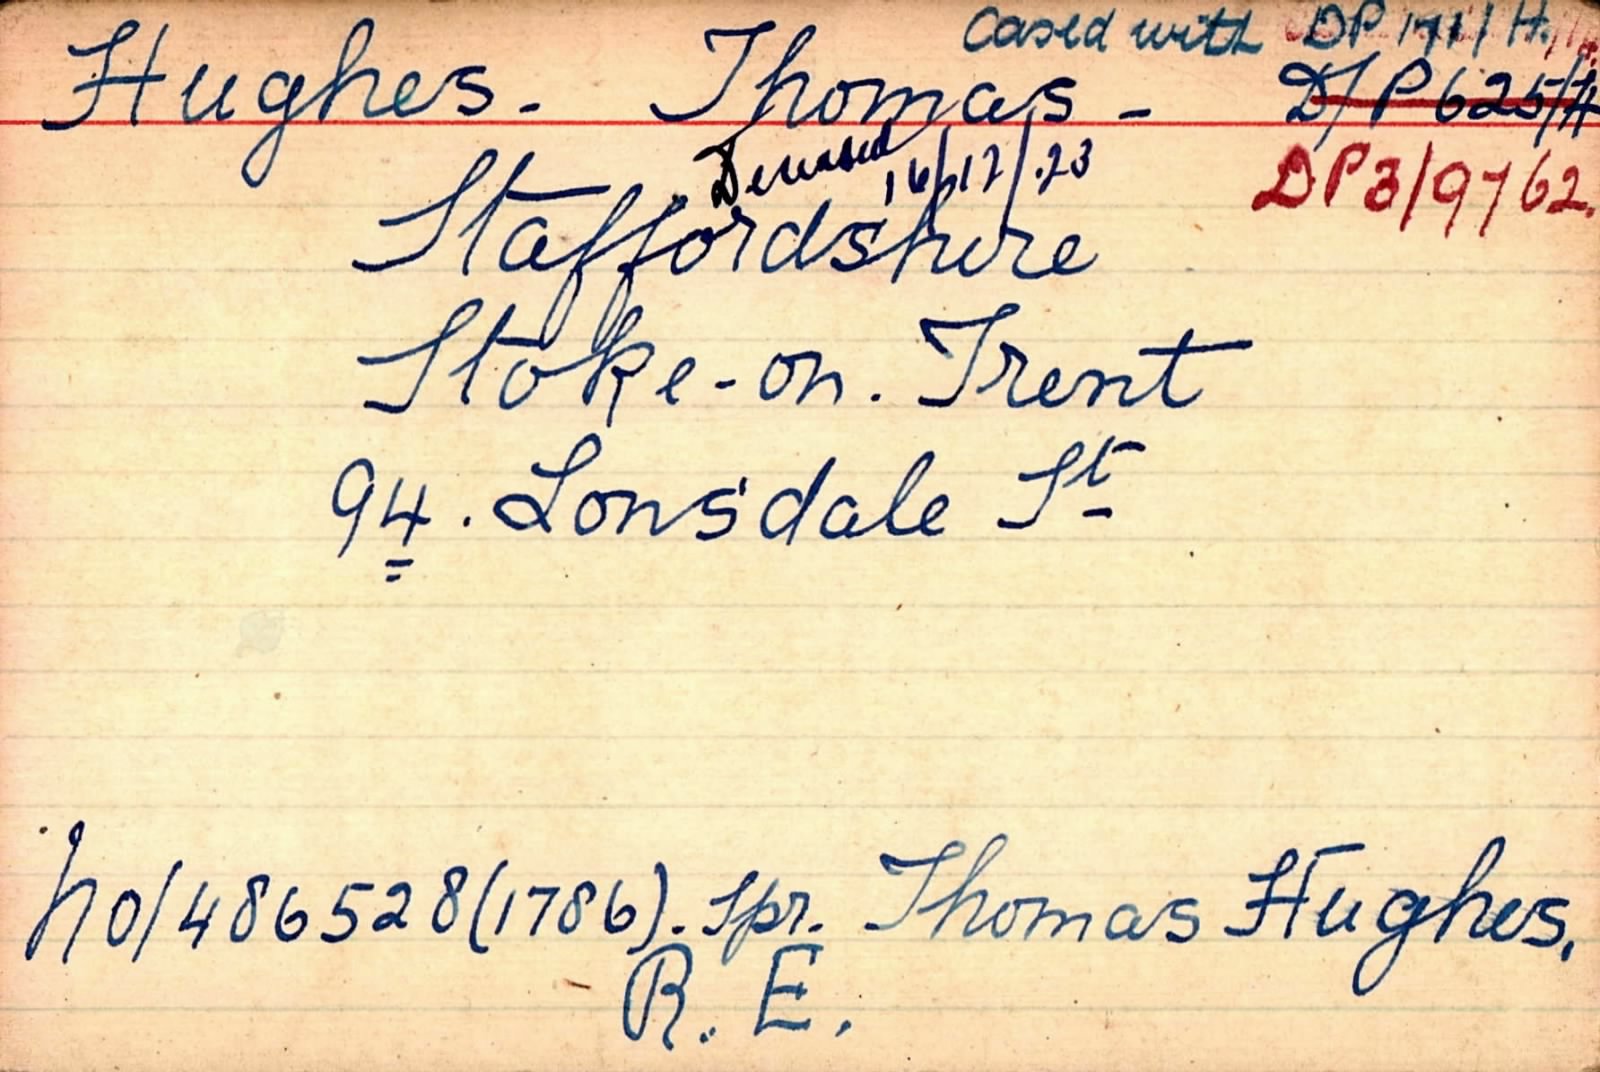 Cased with DP 171/H.
Hughes. Thomas - D/P 625/H
Deceased 16/12/23
DP3/9762.
Staffordshire
Stoke-on. Trent
94. Lonsdale St
No/486528(1786). Spr. Thomas Hughes.
R. E.